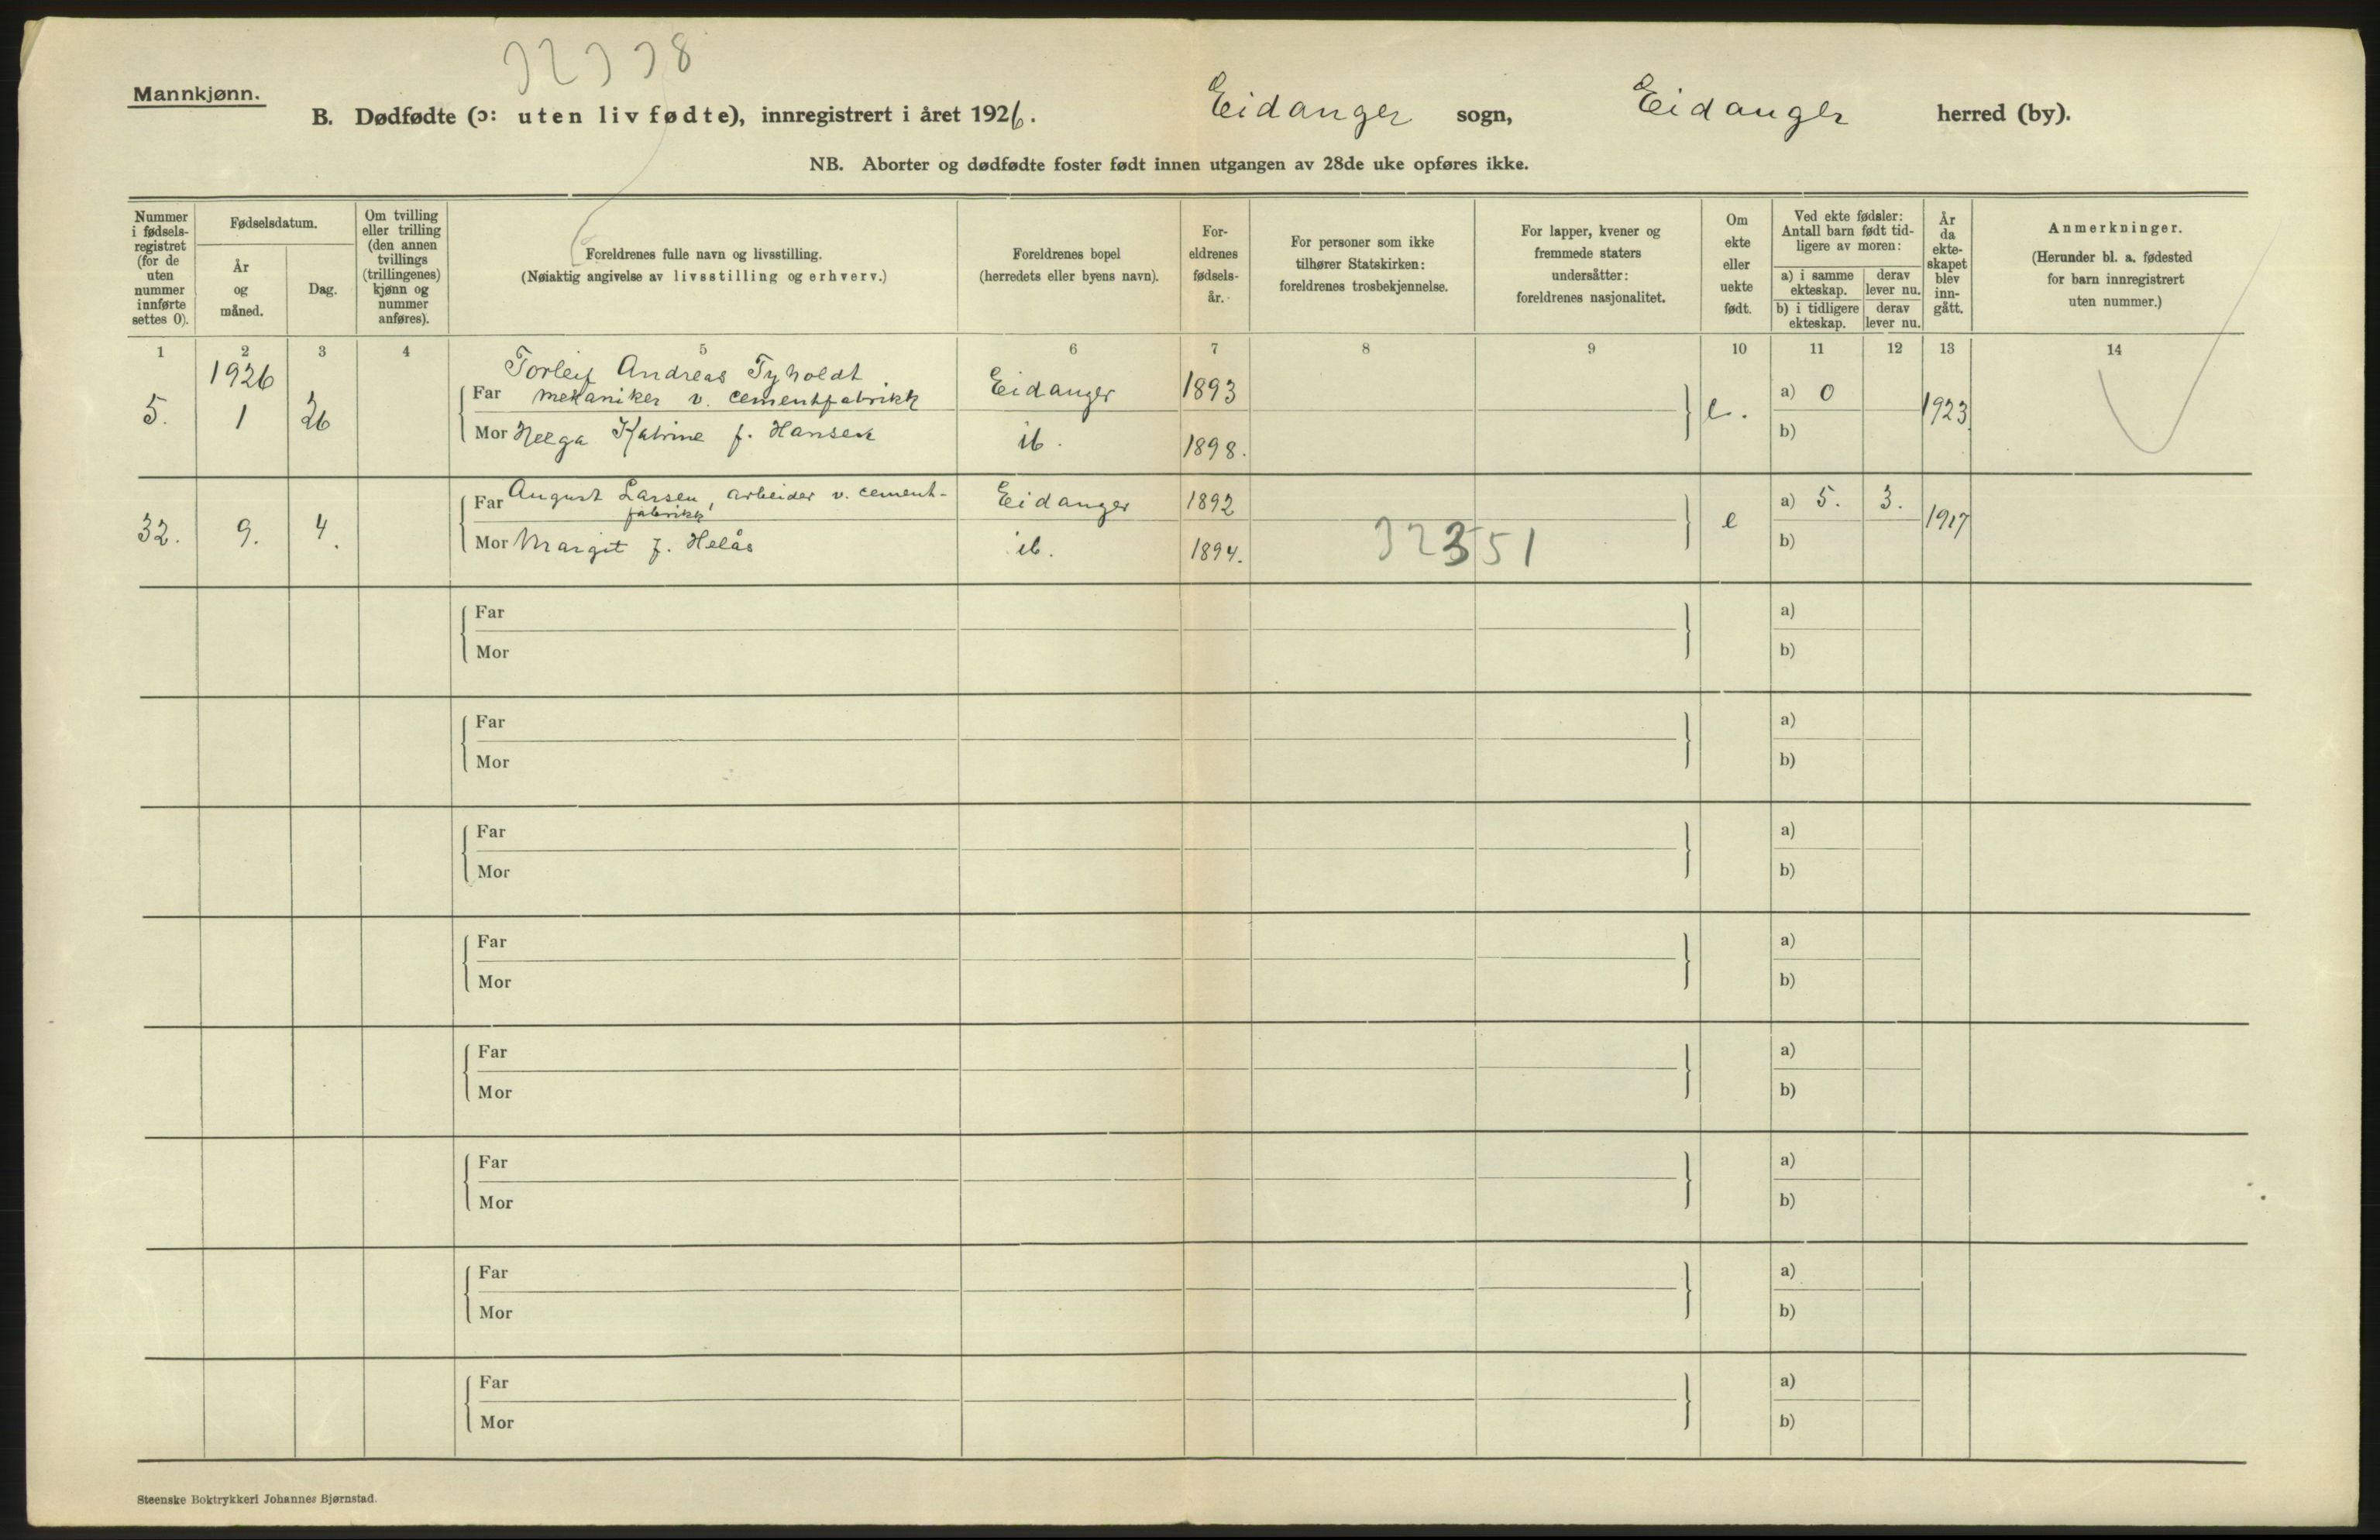 32338
Mannkjønn.
B. Dødfødte (ɔ: uten liv fødte), innregistrert i året 1926. Eidanger sogn, Eidanger herred (by).
NB. Aborter og dødfødte foster født innen utgangen av 28de uke opføres ikke.
Nummer
i fødsels-
registret
(for de
uten
nummer
innførte
settes 0).
Fødselsdatum.
År
og
måned.
Dag.
Om tvilling
eller trilling
(den annen
tvillings
(trillingenes)
kjønn og
nummer
anføres).
Foreldrenes fulle navn og livsstilling.
(Nøiaktig angivelse av livsstilling og erhverv.)
Foreldrenes bopel
(herredets eller byens navn).
For-
eldrenes
fødsels-
år.
For personer som ikke
tilhører Statskirken:
foreldrenes trosbekjennelse.
For lapper, kvener og
fremmede staters
undersåtter:
foreldrenes nasjonalitet.
Om
ekte
eller
uekte
født.
Ved ekte fødsler:
Antall barn født tid-
ligere av moren:
a) i samme
ekteskap.
derav
lever nu.
b) i tidligere
ekteskap.
derav
lever nu.
År
da
ekte-
skapet
blev
inn-
gått.
Anmerkninger.
(Herunder bl. a. fødested
for barn innregistrert
uten nummer.)
1 2 3 4 5 6 7 8 9 10 11 12 13 14
1926
5. 1 26
Torleif Andreas Tyholdt
Far mekaniker v. cementfabrikk Eidanger 1893
Mor Helga Katrine f. Hansen ib. 1898.
e. a) 0 1923
b)
32. 9. 4.
Far August Larsen, arbeider v. cement-
fabrikk Eidanger 1892
Mor Margit f. Helås ib. 1894.
32351
e a) 5. 3. 1917
b)
Far a)
Mor b)
Far a)
Mor b)
Far a)
Mor b)
Far a)
Mor b)
Far a)
Mor b)
Far a)
Mor b)
Far a)
Mor b)
Far a)
Mor b)
Steenske Boktrykkeri Johannes Bjørnstad.